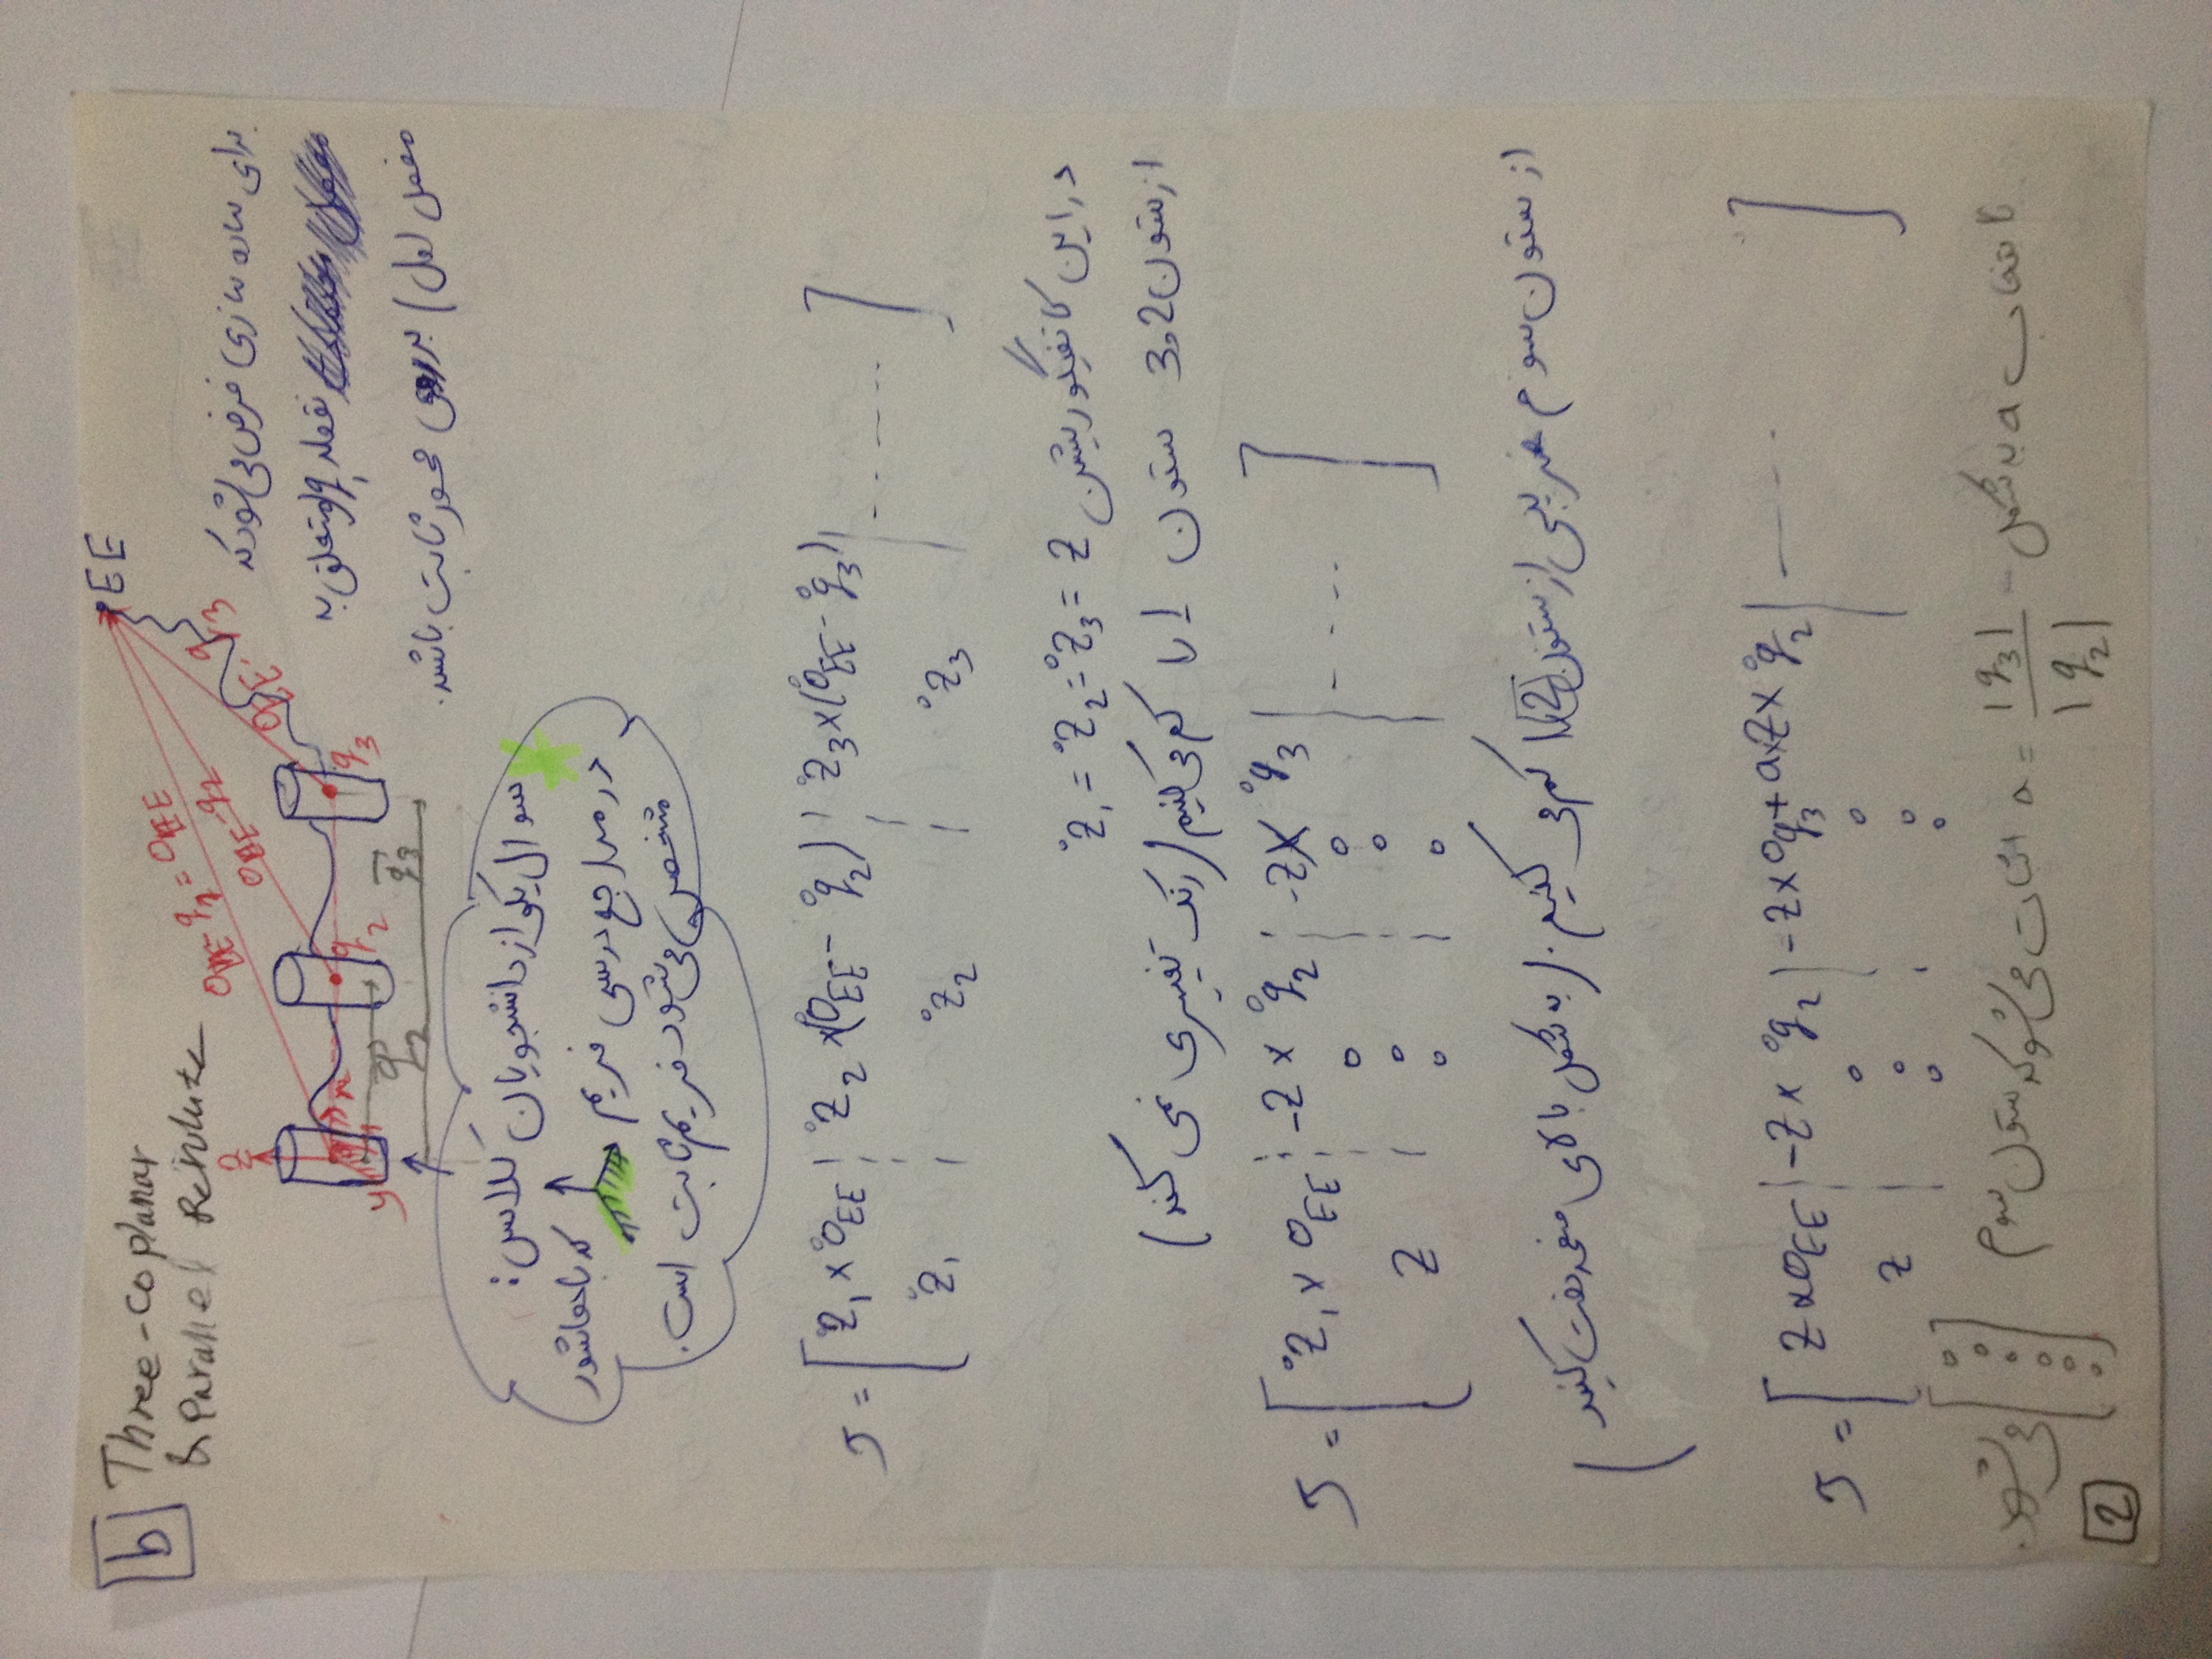 b
Three-coplanar
& Parallel Revolute
EE
O_EE - q_1 = O_EE
O_EE - q_2
O_EE - q_3
برای ساده سازی فرض می‌شود که
نقطه q_1 (متعلق به
مفصل اول) بر روی محور ثابت باشد.
z
x
y
q_1
q_2
q_3
q_2
q_3
سوال یکی از دانشجویان کلاس:
در مراجع درسی فریم که با هاشور
مشخص می‌شود فریم ثابت است.
J = [ ⁰z_1 × ⁰O_EE | ⁰z_2 × (⁰O_EE - ⁰q_2) | ⁰z_3 × (⁰O_EE - ⁰q_3) | ...... ]
⁰z_1 | ⁰z_2 | ⁰z_3
در این کانفیگوریشن ⁰z_1 = ⁰z_2 = ⁰z_3 = z
از ستون 2 و 3 ستون 1 را کم می کنیم (رنک تغییری نمی کند)
J = [ ⁰z_1 × O_EE | -z × ⁰q_2 | -z × ⁰q_3 | ..... ]
z | 0 0 0 | 0 0 0
از ستون سوم ضریبی از ستون 2 را کم می کنیم. (به شکل بالای صفحه دقت کنید)
J = [ z × O_EE | -z × ⁰q_2 | -z × ⁰q_3 + a × z × ⁰q_2 | ..... ]
z | 0 0 0 | 0 0 0
با انتخاب a به شکل a = |q_3| / |q_2| اثبات می‌شو که ستون سوم [0 0 0 0 0 0] می‌شود.
2